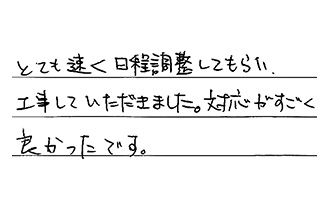 とても速く日程調整してもらい、
工事していただきました。対応がすごく
良かったです。